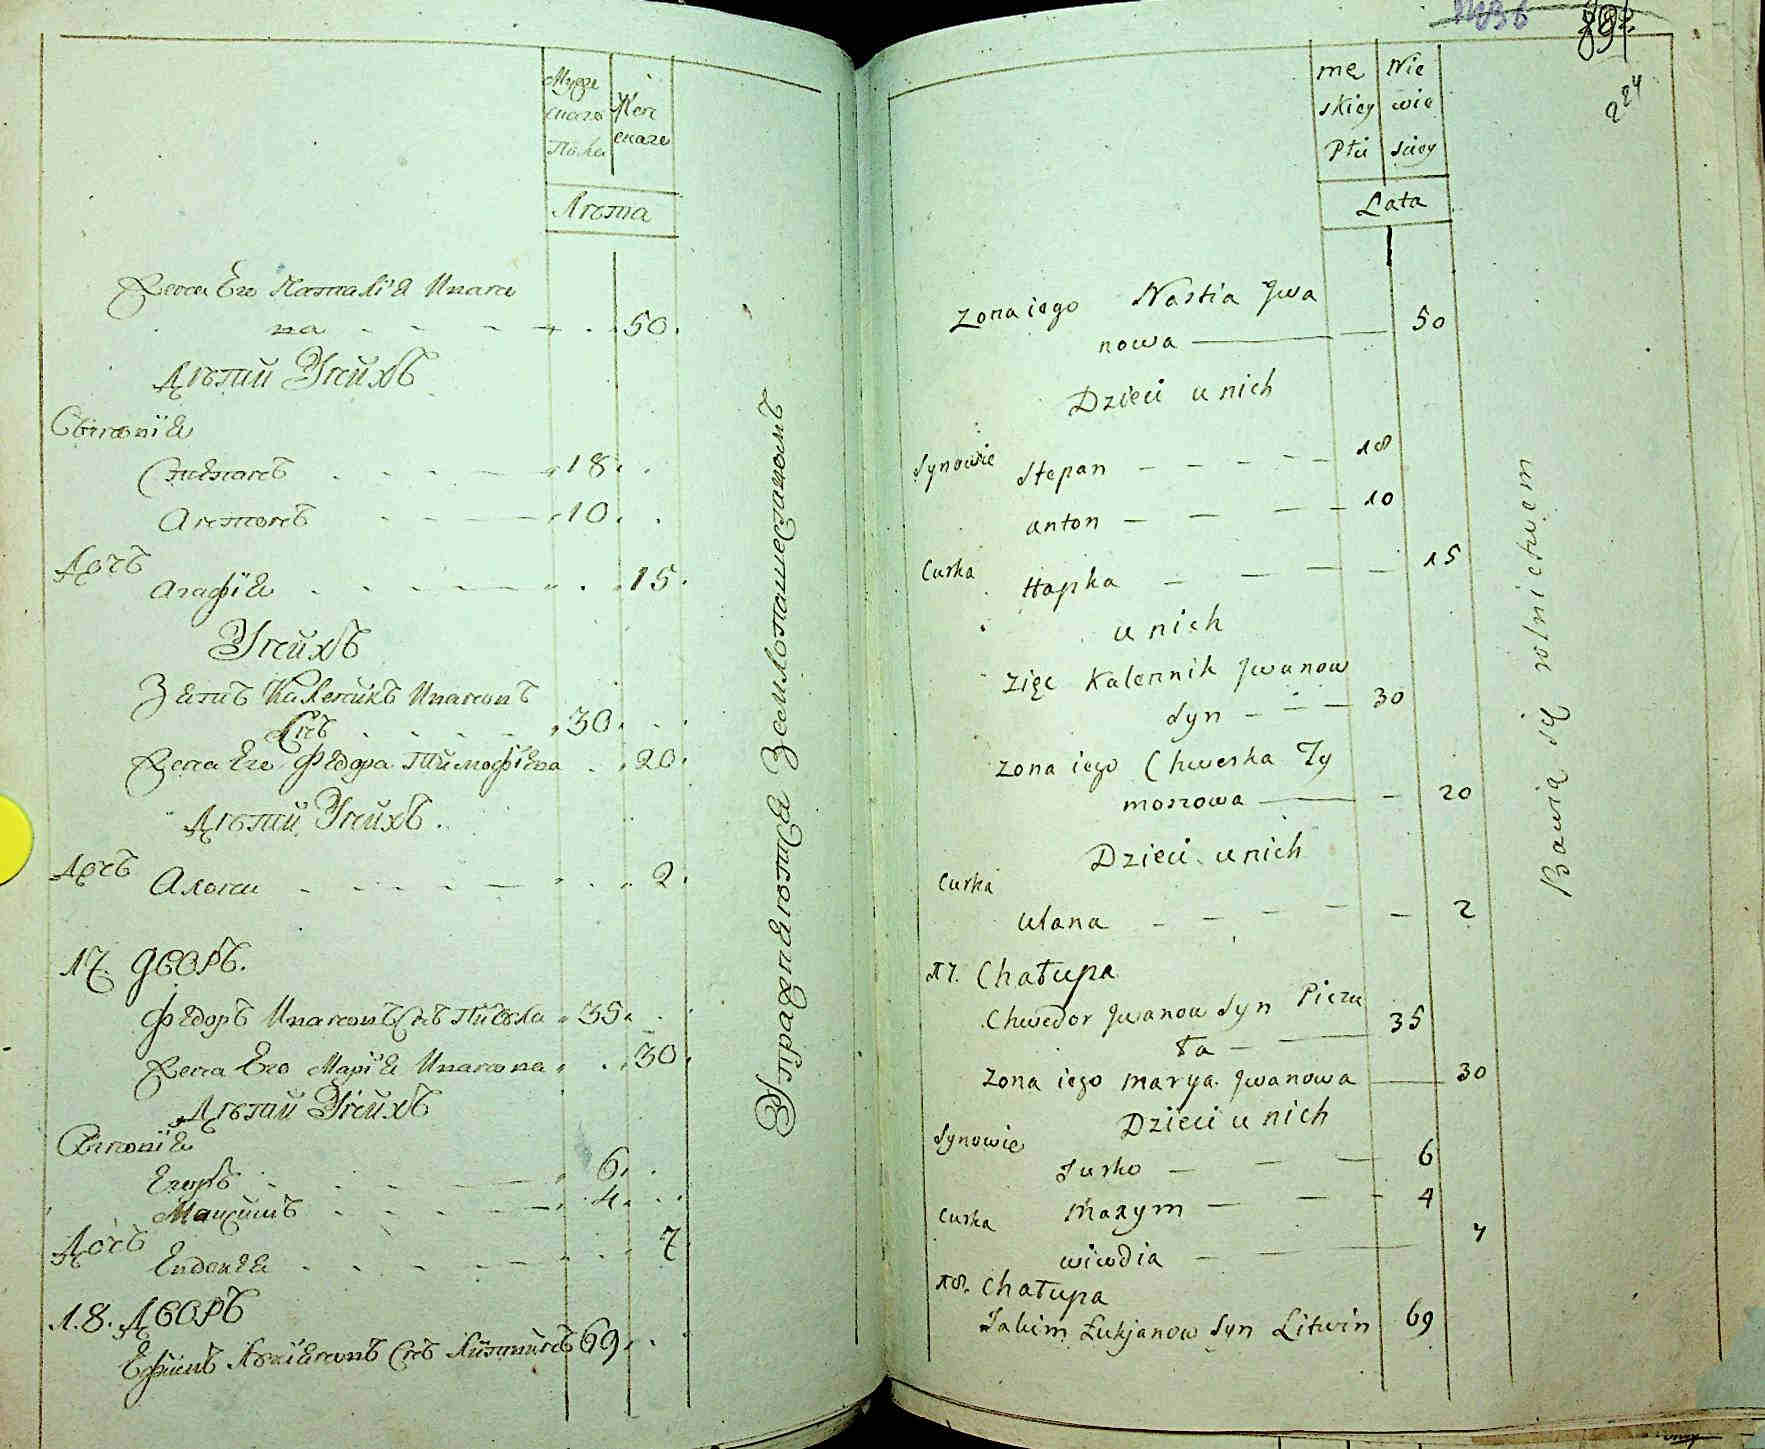 Муже
скаго
Пола
Жен
скаго
Лѣта
Жена Его Наталія Ивано
на 50.
Дѣтѝ Унѝхъ
Сыновія
Стѣпанъ 18.
Антонъ 10.
Дочъ
Агафія 15.
Унѝхъ
Зять Каленѝкъ Ивановъ
Снъ 30.
Жена Его Фѣдора Тѝмофѣева 20.
Дѣтѝ Унѝхъ.
Дочъ
Алона 2.
17. Дворъ.
Фѣдоръ Ивановъ Снъ 35.
Жена Его Марія Иванова 30.
Дѣтѝ Унѝхъ
Сыновія
Егоръ 6.
Макѝмъ 4.
Дочъ
Евдокѣя 7
18. Дворъ
Ефѝмъ Лукіановъ Снъ Лѝтвѝнъ 69.
Упражняютца Землопашествомъ
224
mę
skiey
Płci
Nie
wie
sciey
Lata
Zona iego Nastia Jwa
nowa 50
Dzieci u nich
Synowie Stepan 18
anton 10
Curka Hapka 15
u nich
Zięc Kalennik Jwanow
Syn 30
Zona iego Chweska Ty
moszowa 20
Dzieci u nich
Curka
Ulana 2
17. Chałupa
Chwedor Jwanow Syn Piczu
ła 35
Zona iego Marya Jwanowa 30
Dzieci u nich
Synowie
Jurko 6
Maxym 4
Curka
wiwdia 7
18. Chałupa
Jakim Łukjanow Syn Litwin 69
Bawią się rolnictwem